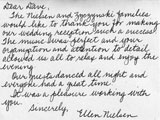 Dear Dave,
The Nielsen and Zyczynski families
would like to thank you for making
our wedding reception such a success!
The music was perfect and your
organization and attention to detail
allowed us all to relax and enjoy the
evening.
Our guests danced all night and
everyone had a great time.
It was a pleasure working with
you.
Sincerely,
Ellen Nielsen